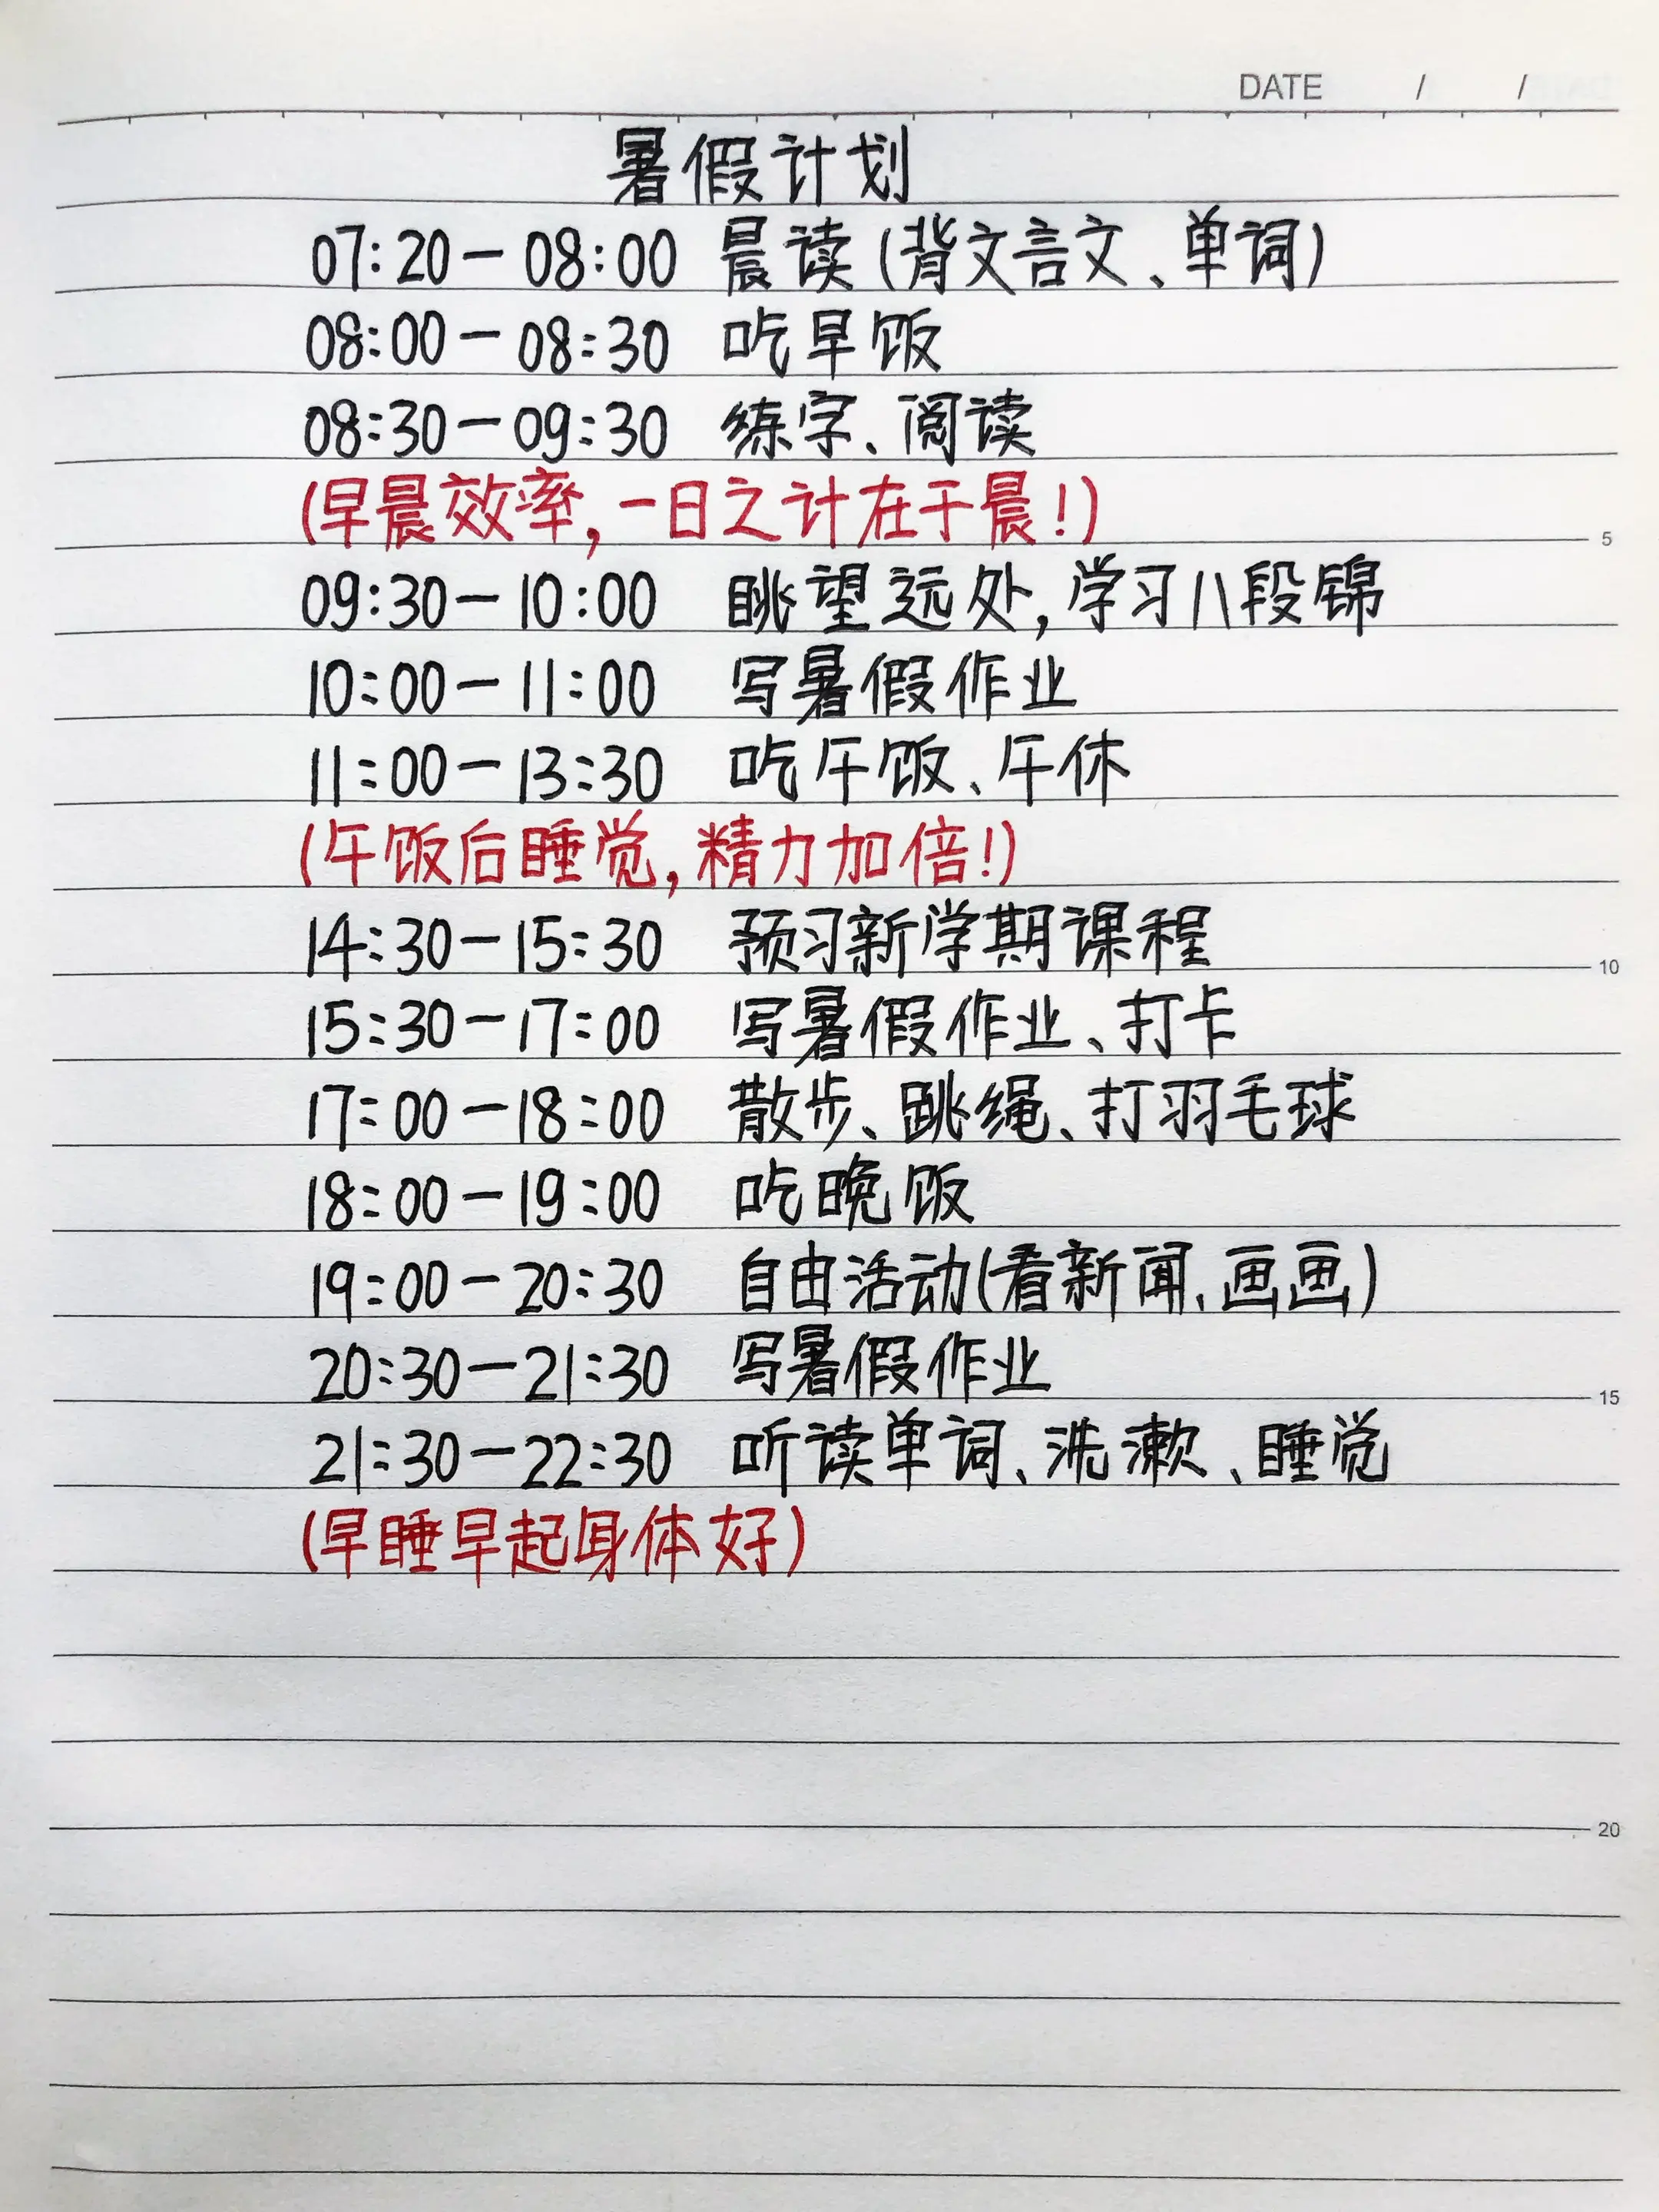 DATE / /
暑假计划
07:20—08:00 晨读(背文言文、单词)
08:00—08:30 吃早饭
08:30—09:30 练字、阅读
(早晨效率,一日之计在于晨!)
5
09:30—10:00 眺望远处,学习八段锦
10:00—11:00 写暑假作业
11:00—13:30 吃午饭、午休
(午饭后睡觉,精力加倍!)
14:30—15:30 预习新学期课程
10
15:30—17:00 写暑假作业、打卡
17:00—18:00 散步、跳绳、打羽毛球
18:00—19:00 吃晚饭
19:00—20:30 自由活动(看新闻、画画)
20:30—21:30 写暑假作业
15
21:30—22:30 听读单词、洗漱、睡觉
(早睡早起身体好)
20